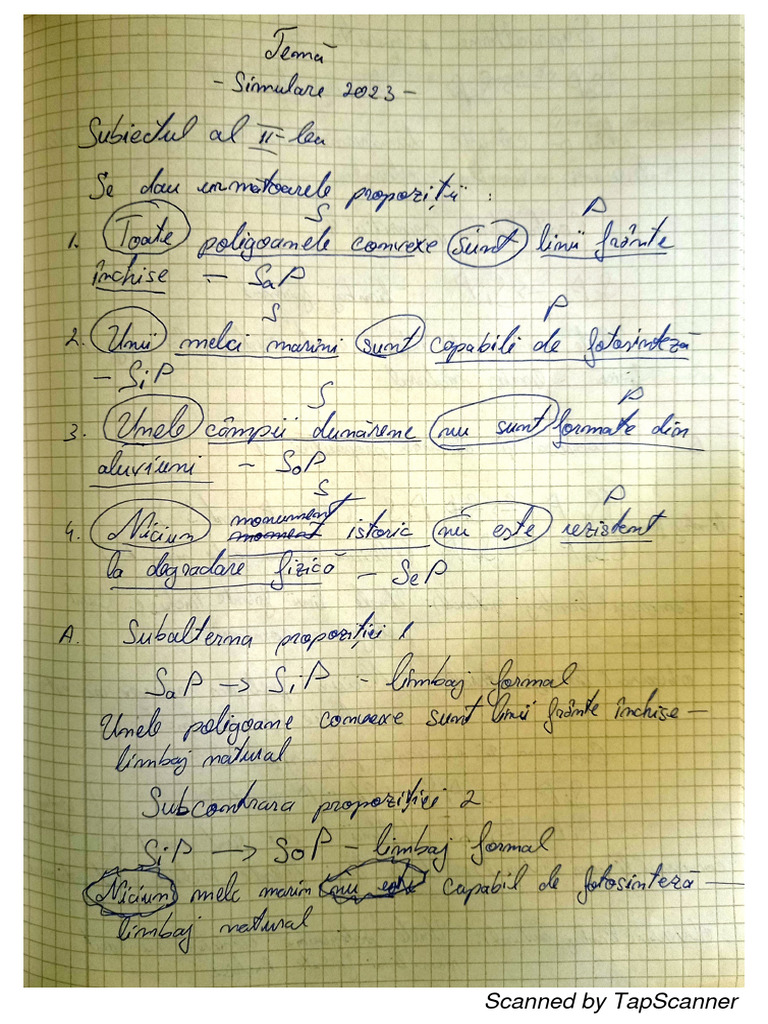 Temă
- Simulare 2023 -
Subiectul al II-lea
Se dau următoarele propoziții :
S P
1. Toate poligoanele convexe sunt linii frânte
închise - SaP
S P
2. Unii melci marini sunt capabili de fotosinteză
- SiP
S P
3. Unele câmpii dunărene nu sunt formate din
aluviuni - SoP
S P
monument
4. Niciun moment istoric nu este rezistent
la degradare fizică - SeP
A. Subalterna propoziției 1
SaP → SiP - limbaj formal
Unele poligoane convexe sunt linii frânte închise -
limbaj natural
Subcontrara propoziției 2
SiP → SoP - limbaj formal
Niciun melc marin nu este capabil de fotosinteză -
limbaj natural
Scanned by TapScanner